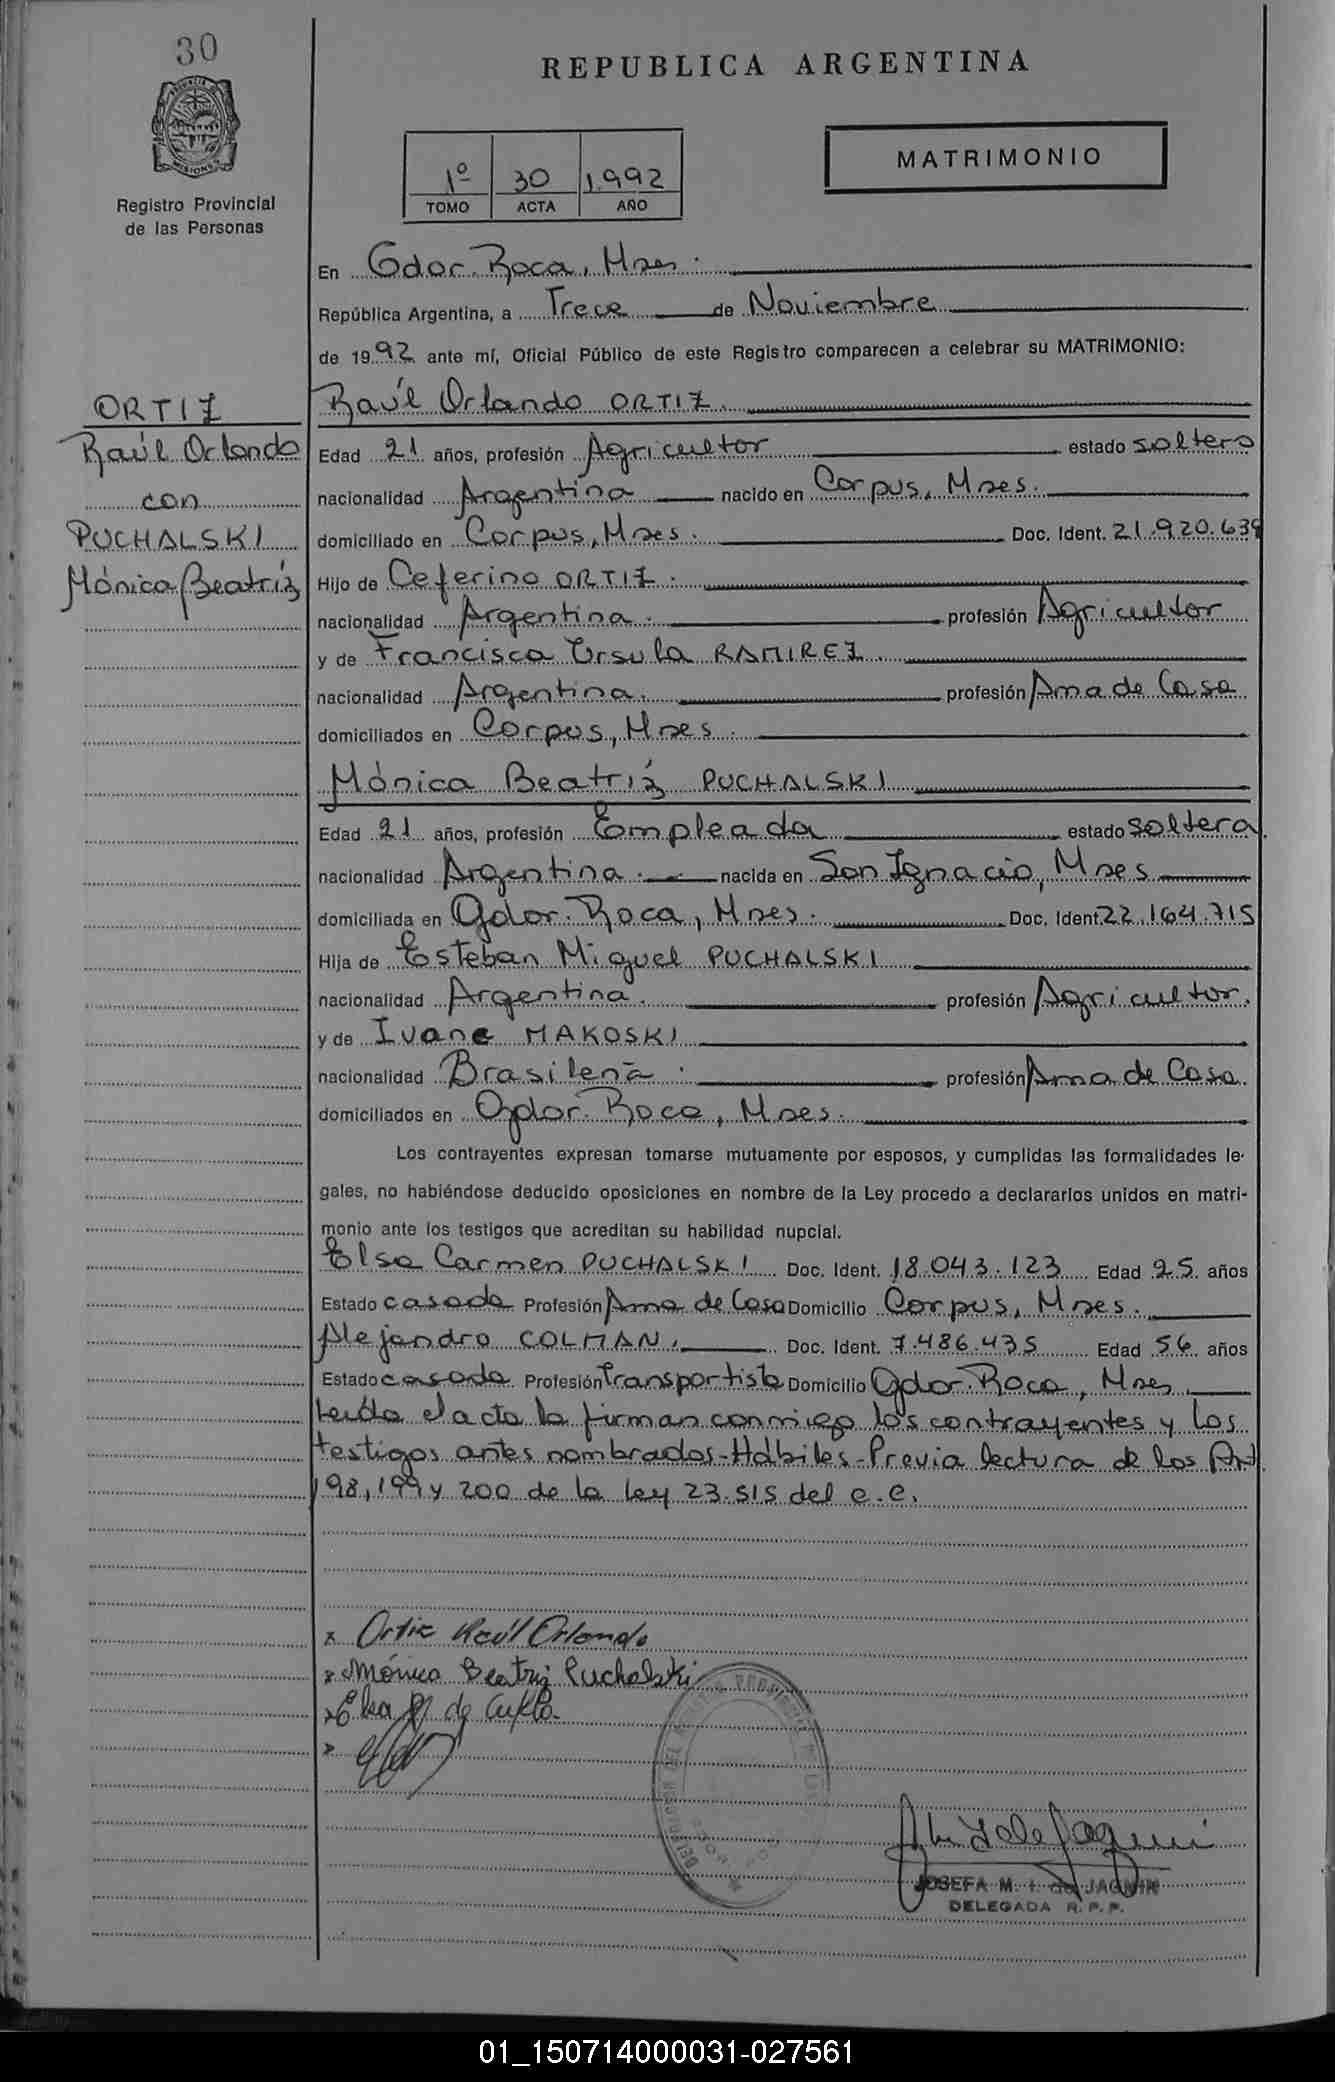 30
REPUBLICA ARGENTINA
MATRIMONIO
1º 30 1.992
TOMO ACTA AÑO
MISIONES
Registro Provincial
de las Personas
En Gdor. Roca, Mnes.
República Argentina, a Trece de Noviembre
de 1992 ante mí, Oficial Público de este Registro comparecen a celebrar su MATRIMONIO:
ORTIZ
Raúl Orlando
con
PUCHALSKI
Mónica Beatríz
Raúl Orlando ORTIZ.
Edad 21 años, profesión Agricultor estado soltero
nacionalidad Argentina nacido en Corpus, Mnes.
domiciliado en Corpus, Mnes. Doc. Ident. 21.920.639
Hijo de Ceferino ORTIZ.
nacionalidad Argentina. profesión Agricultor
y de Francisca Ursula RAMIREZ.
nacionalidad Argentina. profesión Ama de Casa
domiciliados en Corpus, Mnes.
Mónica Beatríz PUCHALSKI
Edad 21 años, profesión Empleada estado soltera.
nacionalidad Argentina. nacida en San Ignacio, Mnes
domiciliada en Gdor. Roca, Mnes. Doc. Ident. 22.164.715
Hija de Esteban Miguel PUCHALSKI
nacionalidad Argentina. profesión Agricultor.
y de Ivane MAKOSKI
nacionalidad Brasileña. profesión Ama de Casa.
domiciliados en Gdor. Roca, Mnes.
Los contrayentes expresan tomarse mutuamente por esposos, y cumplidas las formalidades le-
gales, no habiéndose deducido oposiciones en nombre de la Ley procedo a declararlos unidos en matri-
monio ante los testigos que acreditan su habilidad nupcial.
Elsa Carmen PUCHALSKI Doc. Ident. 18.043.123 Edad 25 años
Estado casada Profesión Ama de Casa Domicilio Corpus, Mnes.
Alejandro COLMAN. Doc. Ident. 7.486.435 Edad 56 años
Estado casado Profesión Transportista Domicilio Gdor. Roca, Mnes.
Leída el acta la firman conmigo los contrayentes y los
testigos antes nombrados-Hábiles-Previa lectura de los Art.
198, 199 y 200 de la ley 23.515 del C.C.
x Ortiz Raúl Orlando
x Mónica Beatriz Puchalski
x Elsa P. de
x
JOSEFA M. I. de JAQUIN
DELEGADA R.P.P.
01_150714000031-027561